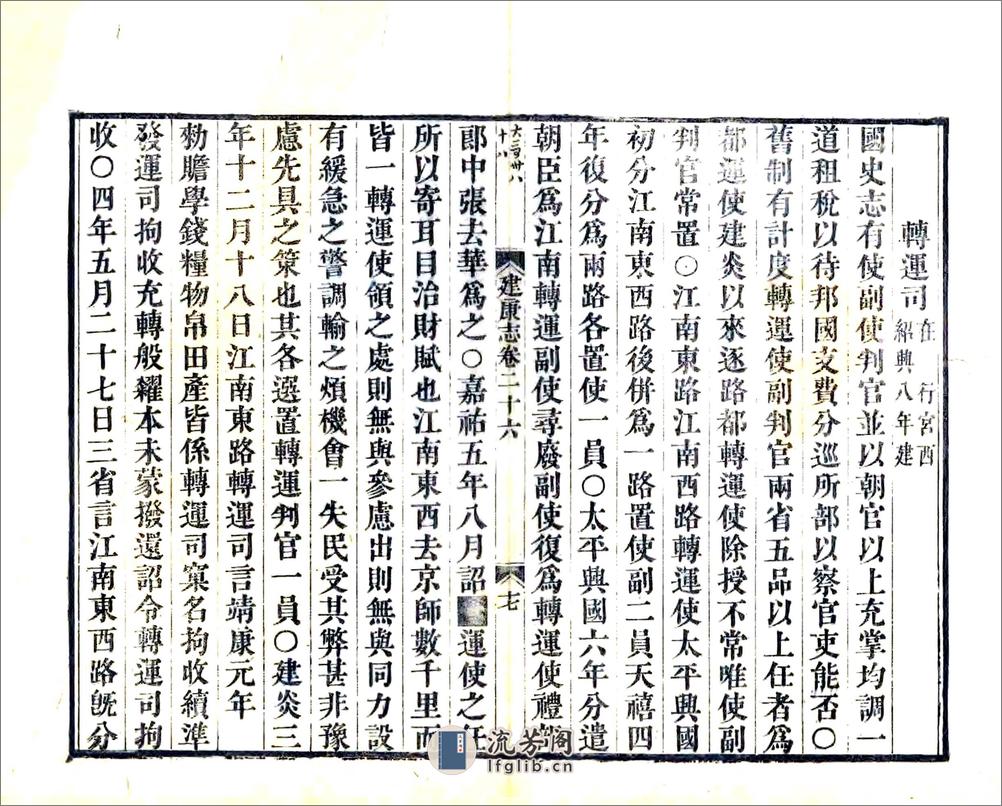 轉運司在　行宮西紹興八年建
國史志有使副使判官並以朝官以上充掌均調一
道租稅以待邦國支費分巡所部以察官吏能否〇
舊制有計度轉運使副判官兩省五品以上任者爲
都運使建炎以來逐路都轉運使除授不常唯使副
判官常置〇江南東路江南西路轉運使太平興國
初分江南東西路後併爲一路置使副二員天禧四
年復分爲兩路各置使一員〇太平興國六年分遣
朝臣爲江南轉運副使尋廢副使復爲轉運使禮
大一百卅八
十八
建康志卷二十六
七
郎中張去華爲之〇嘉祐五年八月詔運使之任
所以寄耳目治財賦也江南東西去京師數千里而
皆一轉運使領之處則無與參慮出則無與同力設
有緩急之警調輸之煩機會一失民受其弊甚非豫
慮先具之策也其各選置轉運判官一員〇建炎三
年十二月十八日江南東路轉運司言靖康元年
勑贍學錢糧物帛田產皆係轉運司窠名拘收續準
發運司拘收充轉般糴本未蒙撥還詔令轉運司拘
收〇四年五月二十七日三省言江南東西路旣分
流芳閣
lfglib.cn